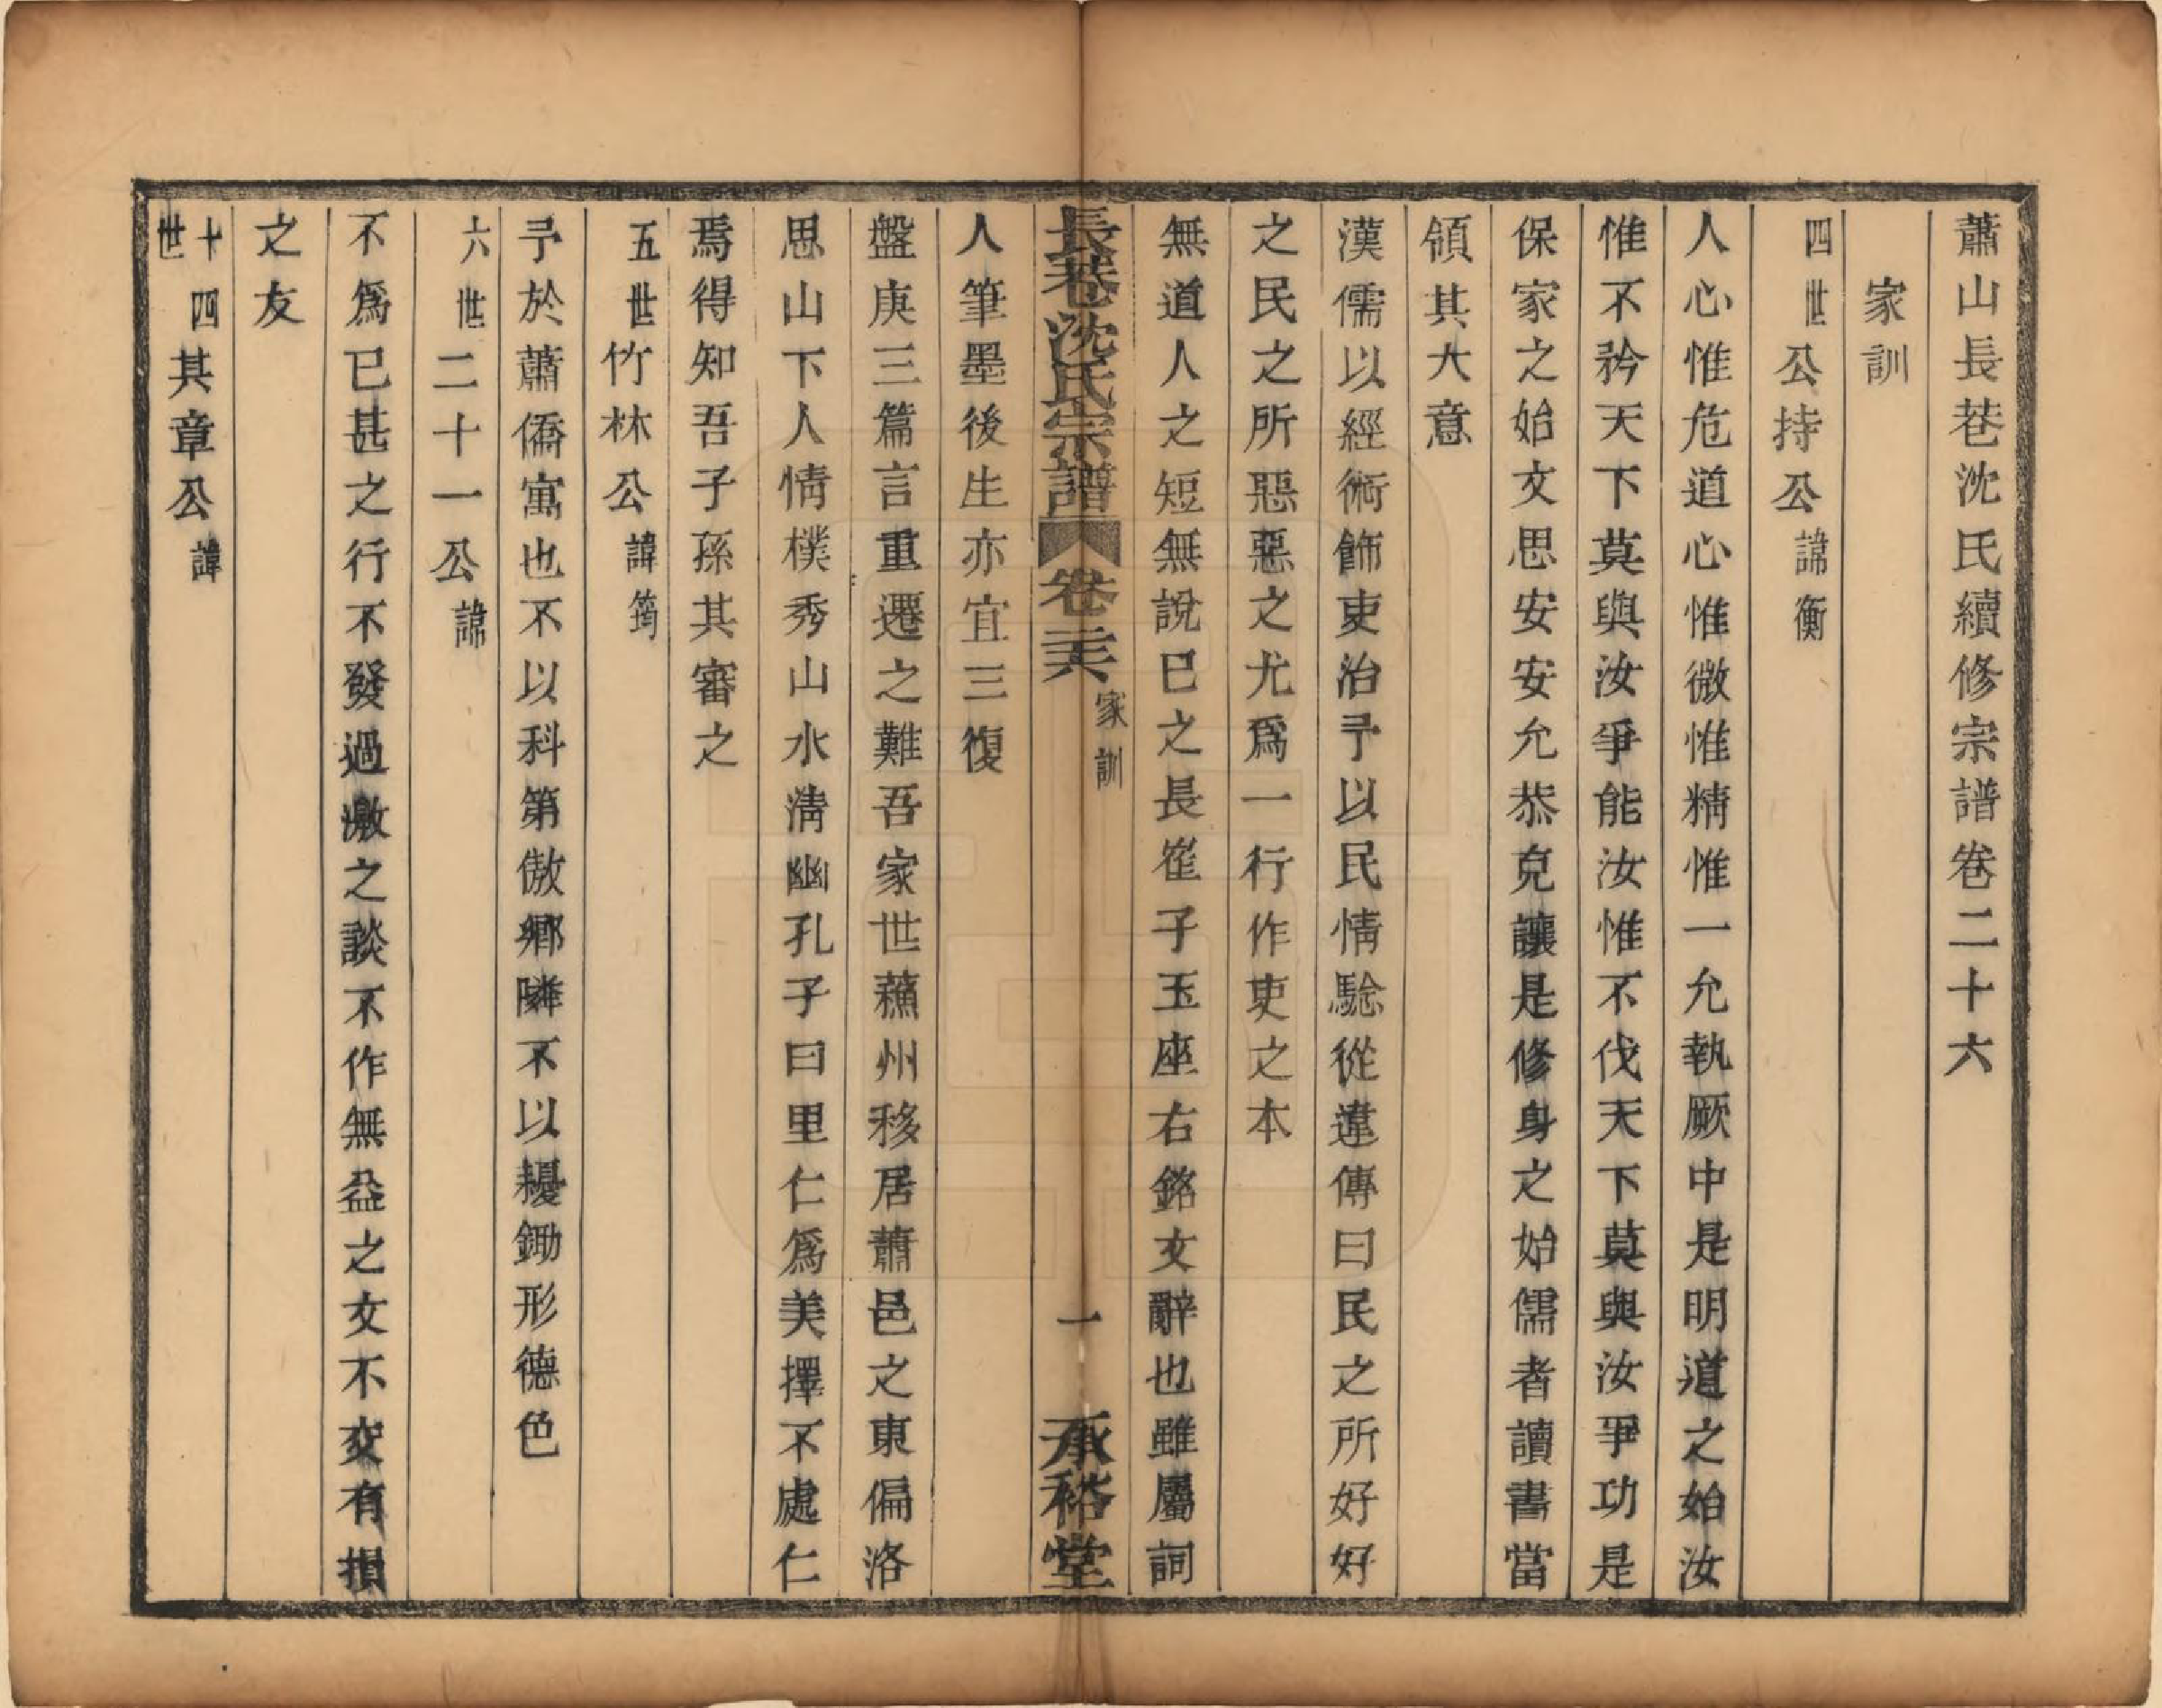 蕭山長巷沈氏續修宗譜卷二十六
家訓
四世公持公諱衡
人心惟危道心惟微惟精惟一允執厥中是明道之始汝
惟不矜天下莫與汝爭能汝惟不伐天下莫與汝爭功是
保家之始文思安安允恭克讓是修身之始儒者讀書當
領其大意
漢儒以經術飾吏治予以民情驗從違傳曰民之所好好
之民之所惡惡之尤爲一行作吏之本
無道人之短無說已之長崔子玉座右銘文辭也雖屬詞
長巷沈氏宗譜 卷二六 家訓 一 承裕堂
人筆墨後生亦宜三復
盤庚三篇言重遷之難吾家世蘓州移居蕭邑之東偏洛
思山下人情樸秀山水淸幽孔子曰里仁爲美擇不處仁
焉得知吾子孫其審之
五世竹林公諱筠
予於蕭僑寓也不以科第傲鄉隣不以耰鋤形德色
六世二十一公諱
不爲已甚之行不發過激之談不作無益之文不交有損
之友
十四世其章公諱